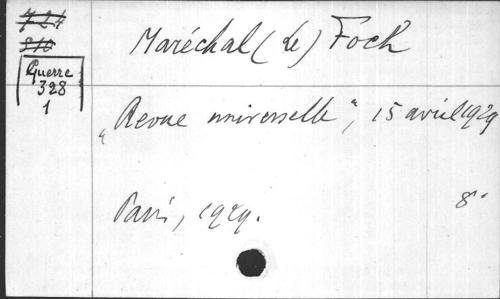 724
810
Guerre
328
1
Maréchal (Le) Foch
„Revue universelle", 15 avril 1929
Paris, 1929.
8°